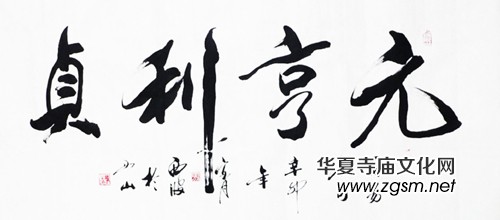 元亨利貞
辛卯年
华夏寺庙文化网
www.zgsm.net